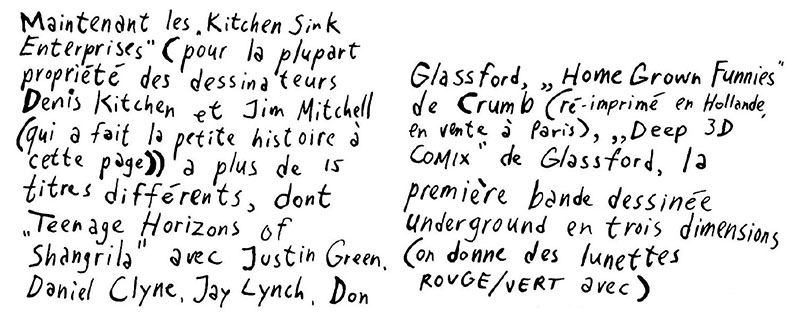 Maintenant les „Kitchen Sink
Enterprises" (pour la plupart
propriété des dessinateurs
Denis Kitchen et Jim Mitchell
(qui a fait la petite histoire à
cette page)) a plus de 15
titres différents, dont
„Teenage Horizons of
Shangrila" avec Justin Green,
Daniel Clyne, Jay Lynch, Don
Glassford, „Home Grown Funnies"
de Crumb (ré-imprimé en Hollande,
en vente à Paris), „Deep 3D
COMIX" de Glassford, la
première bande dessinée
underground en trois dimensions
(on donne des lunettes
ROUGE/VERT avec)